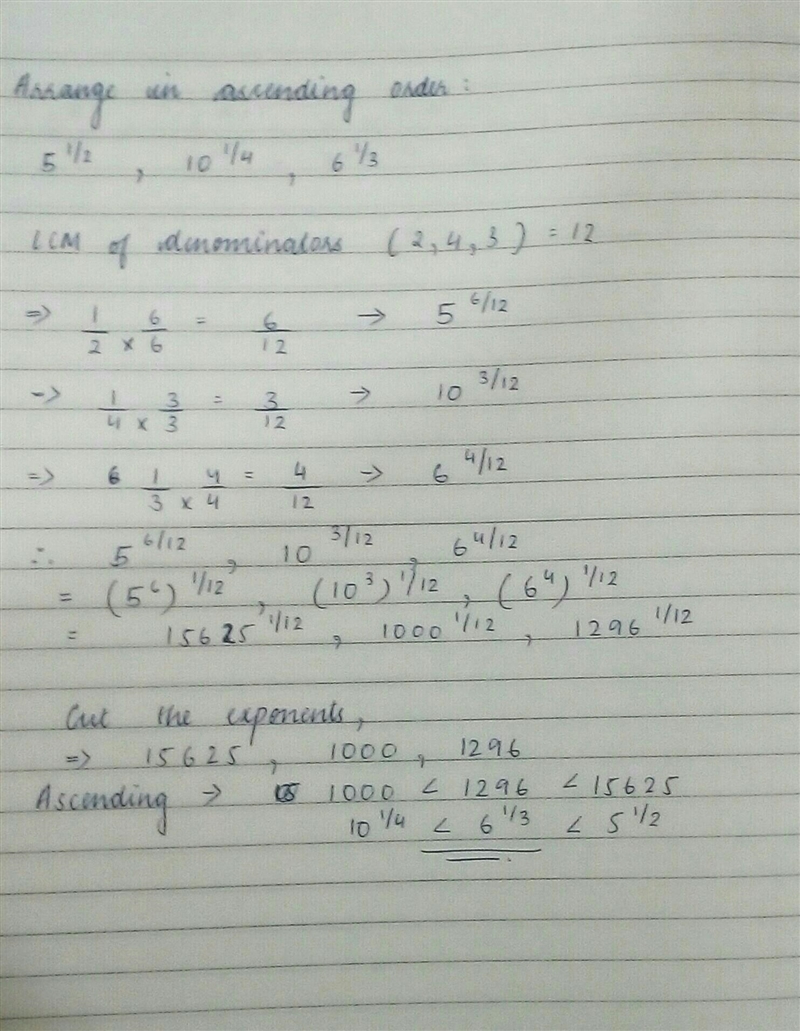 Arrange in ascending order:
5^1/2 , 10^1/4 , 6^1/3
LCM of denominators (2,4,3) = 12
=> 1/2 × 6/6 = 6/12 → 5^6/12
-> 1/4 × 3/3 = 3/12 → 10^3/12
=> 6 1/3 × 4/4 = 4/12 → 6^4/12
∴ 5^6/12 , 10^3/12 , 6^4/12
= (5^6)^1/12 , (10^3)^1/12 , (6^4)^1/12
= 15625^1/12 , 1000^1/12 , 1296^1/12
Cut the exponents,
=> 15625 , 1000 , 1296
Ascending → 1000 < 1296 < 15625
10^1/4 < 6^1/3 < 5^1/2